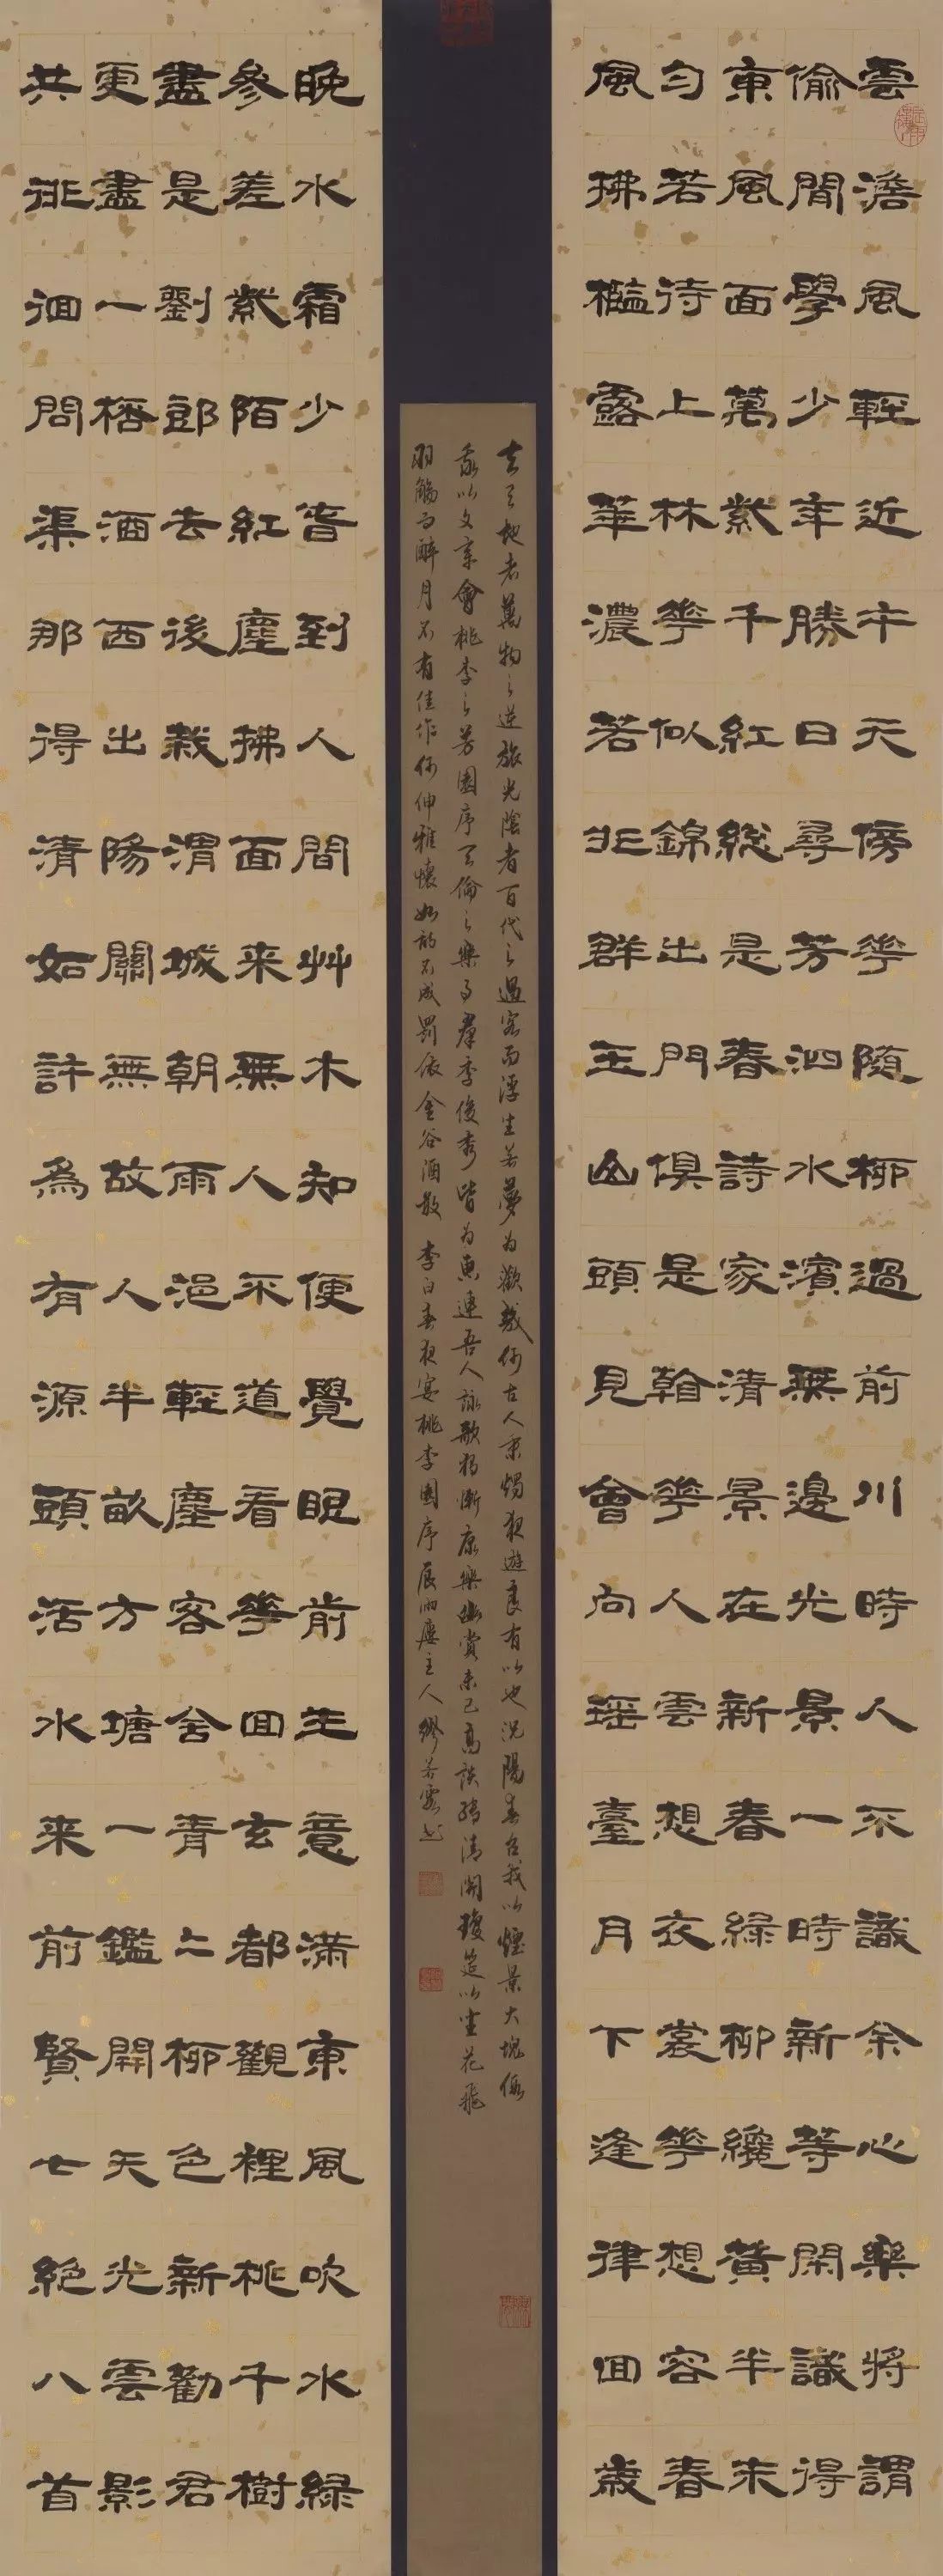 雲澹風輕近午天傍花隨柳過前川時人不識余心樂將謂
偷閒學少年勝日尋芳泗水濱無邊光景一時新等閑識得
東風面萬紫千紅総是春詩家清景在新春緑柳纔黃半未
勻若待上林花似錦出門俱是看花人雲想衣裳花想容春
風拂檻露華濃若非群玉山頭見會向瑤臺月下逢律回歲
夫天地者萬物之逆旅光陰者百代之過客而浮生若夢为歡幾何古人秉燭夜遊良有以也況陽春召我以煙景大塊假
我以文章會桃李之芳園序天倫之樂事羣季俊秀皆为惠連吾人詠歌獨慚康樂幽賞未已高談轉清開瓊筵以坐花飛
羽觴而醉月不有佳作何伸雅懷如詩不成罰依金谷酒數 李白春夜宴桃李園序 主人繆若霞書
晚水霜少旾到人間艸木知便覺眼前生意滿東風吹水緑
參差紫陌紅塵拂面来無人不道看花回玄都觀裡桃千樹
盡是劉郎去後栽渭城朝雨浥輕塵客舍青二柳色新勸君
更盡一桮酒西出陽關無故人半畝方塘一鑑開天光雲影
共徘徊問渠那得清如許為有源頭活水来前賢七絕八首